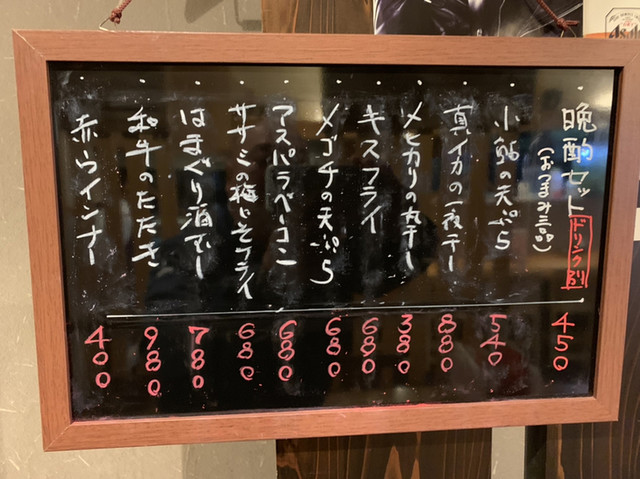 晩酌セット
(おつまみ三品)
ドリンク別
450
小鮎の天ぷら
540
真イカの一夜干し
880
メヒカリの丸干し
380
キスフライ
680
メゴチの天ぷら
680
アスパラベーコン
680
ササミの梅しそフライ
680
はまぐり酒むし
780
和牛のたたき
980
赤ウインナー
400